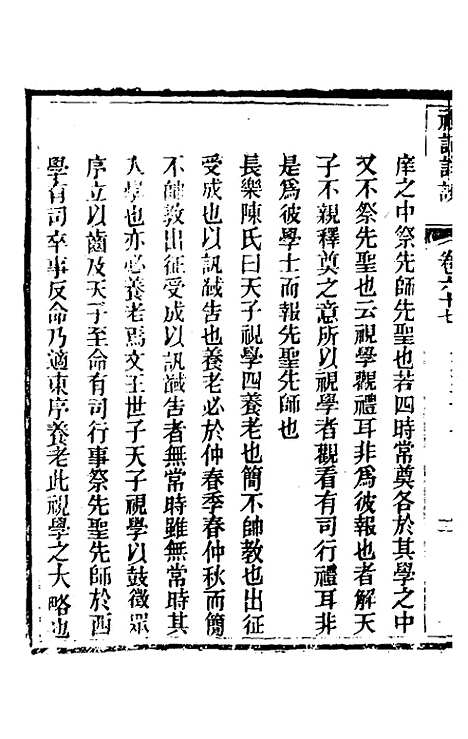 禮記集說 卷六十七
庠之中祭先師先聖也若四時常奠各於其學之中
又不祭先聖也云視學觀禮耳非爲彼報也者解天
子不親釋奠之意所以視學者觀看有司行禮耳非
是爲彼學士而報先聖先師也
長樂陳氏曰天子視學四養老也簡不帥敎也出征
受成也以訊馘告也養老必於仲春季春仲秋而簡
不帥敎出征受成以訊馘告者無常時雖無常時其
入學也亦必養老焉文王世子天子視學以鼓徵眾
序立以齒及天子至命有司行事祭先聖先師於西
學有司卒事反命乃適東序養老此視學之大略也